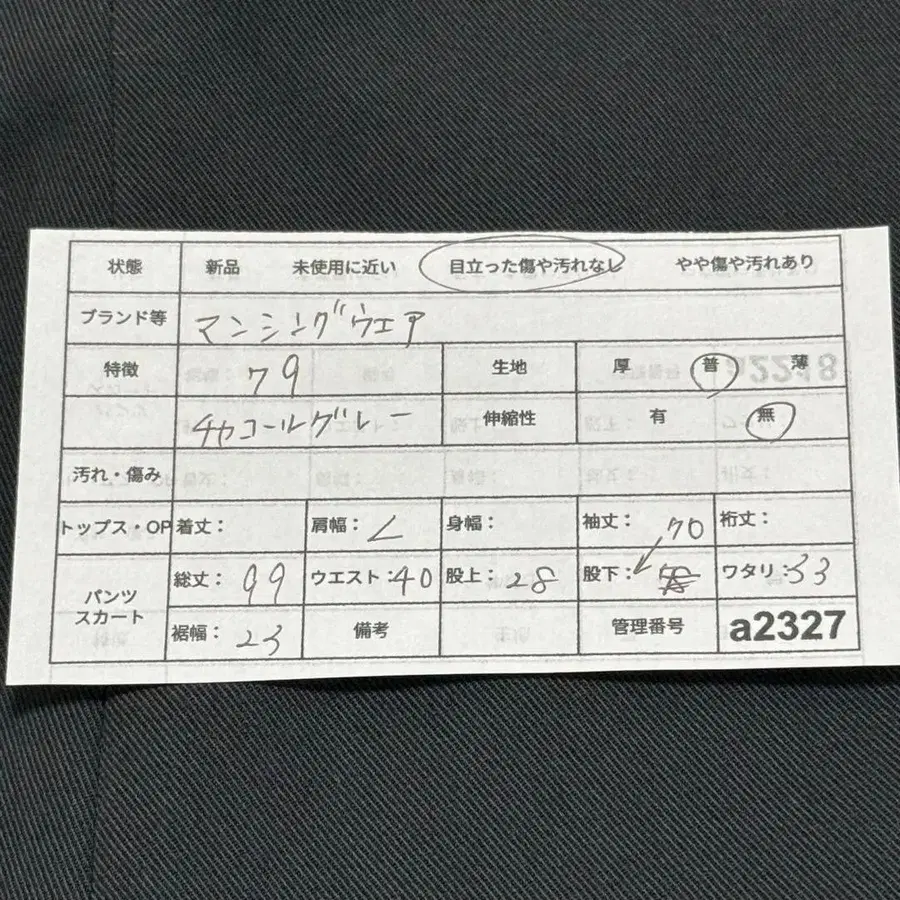 状態 新品 未使用に近い 目立った傷や汚れなし やや傷や汚れあり
ブランド等 マンシングウエア
特徴 79 生地 厚 普 薄
チャコールグレー 伸縮性 有 無
汚れ・傷み
トップス・OP 着丈: 肩幅: L 身幅: 袖丈: 70 裄丈:
パンツ スカート 総丈: 99 ウエスト:40 股上: 28 股下: ワタリ:33
裾幅: 23 備考 管理番号 a2327